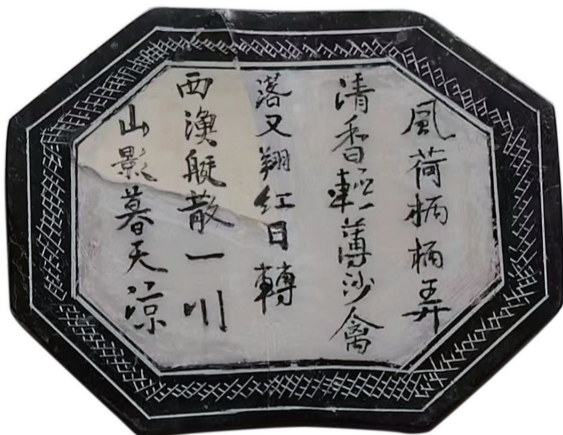 風荷柄柄弄
清香輕薄沙禽
落又翔紅日轉
西漁艇散一川
山影暮天凉